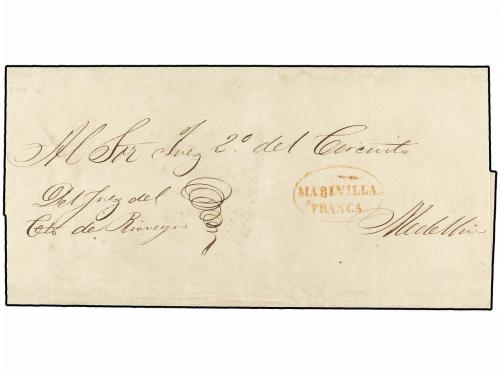 Al Sor Juez 2º del Circuito
MARINILLA.
FRANCA.
Del Juez del
Cto de Rionegro
Medellin